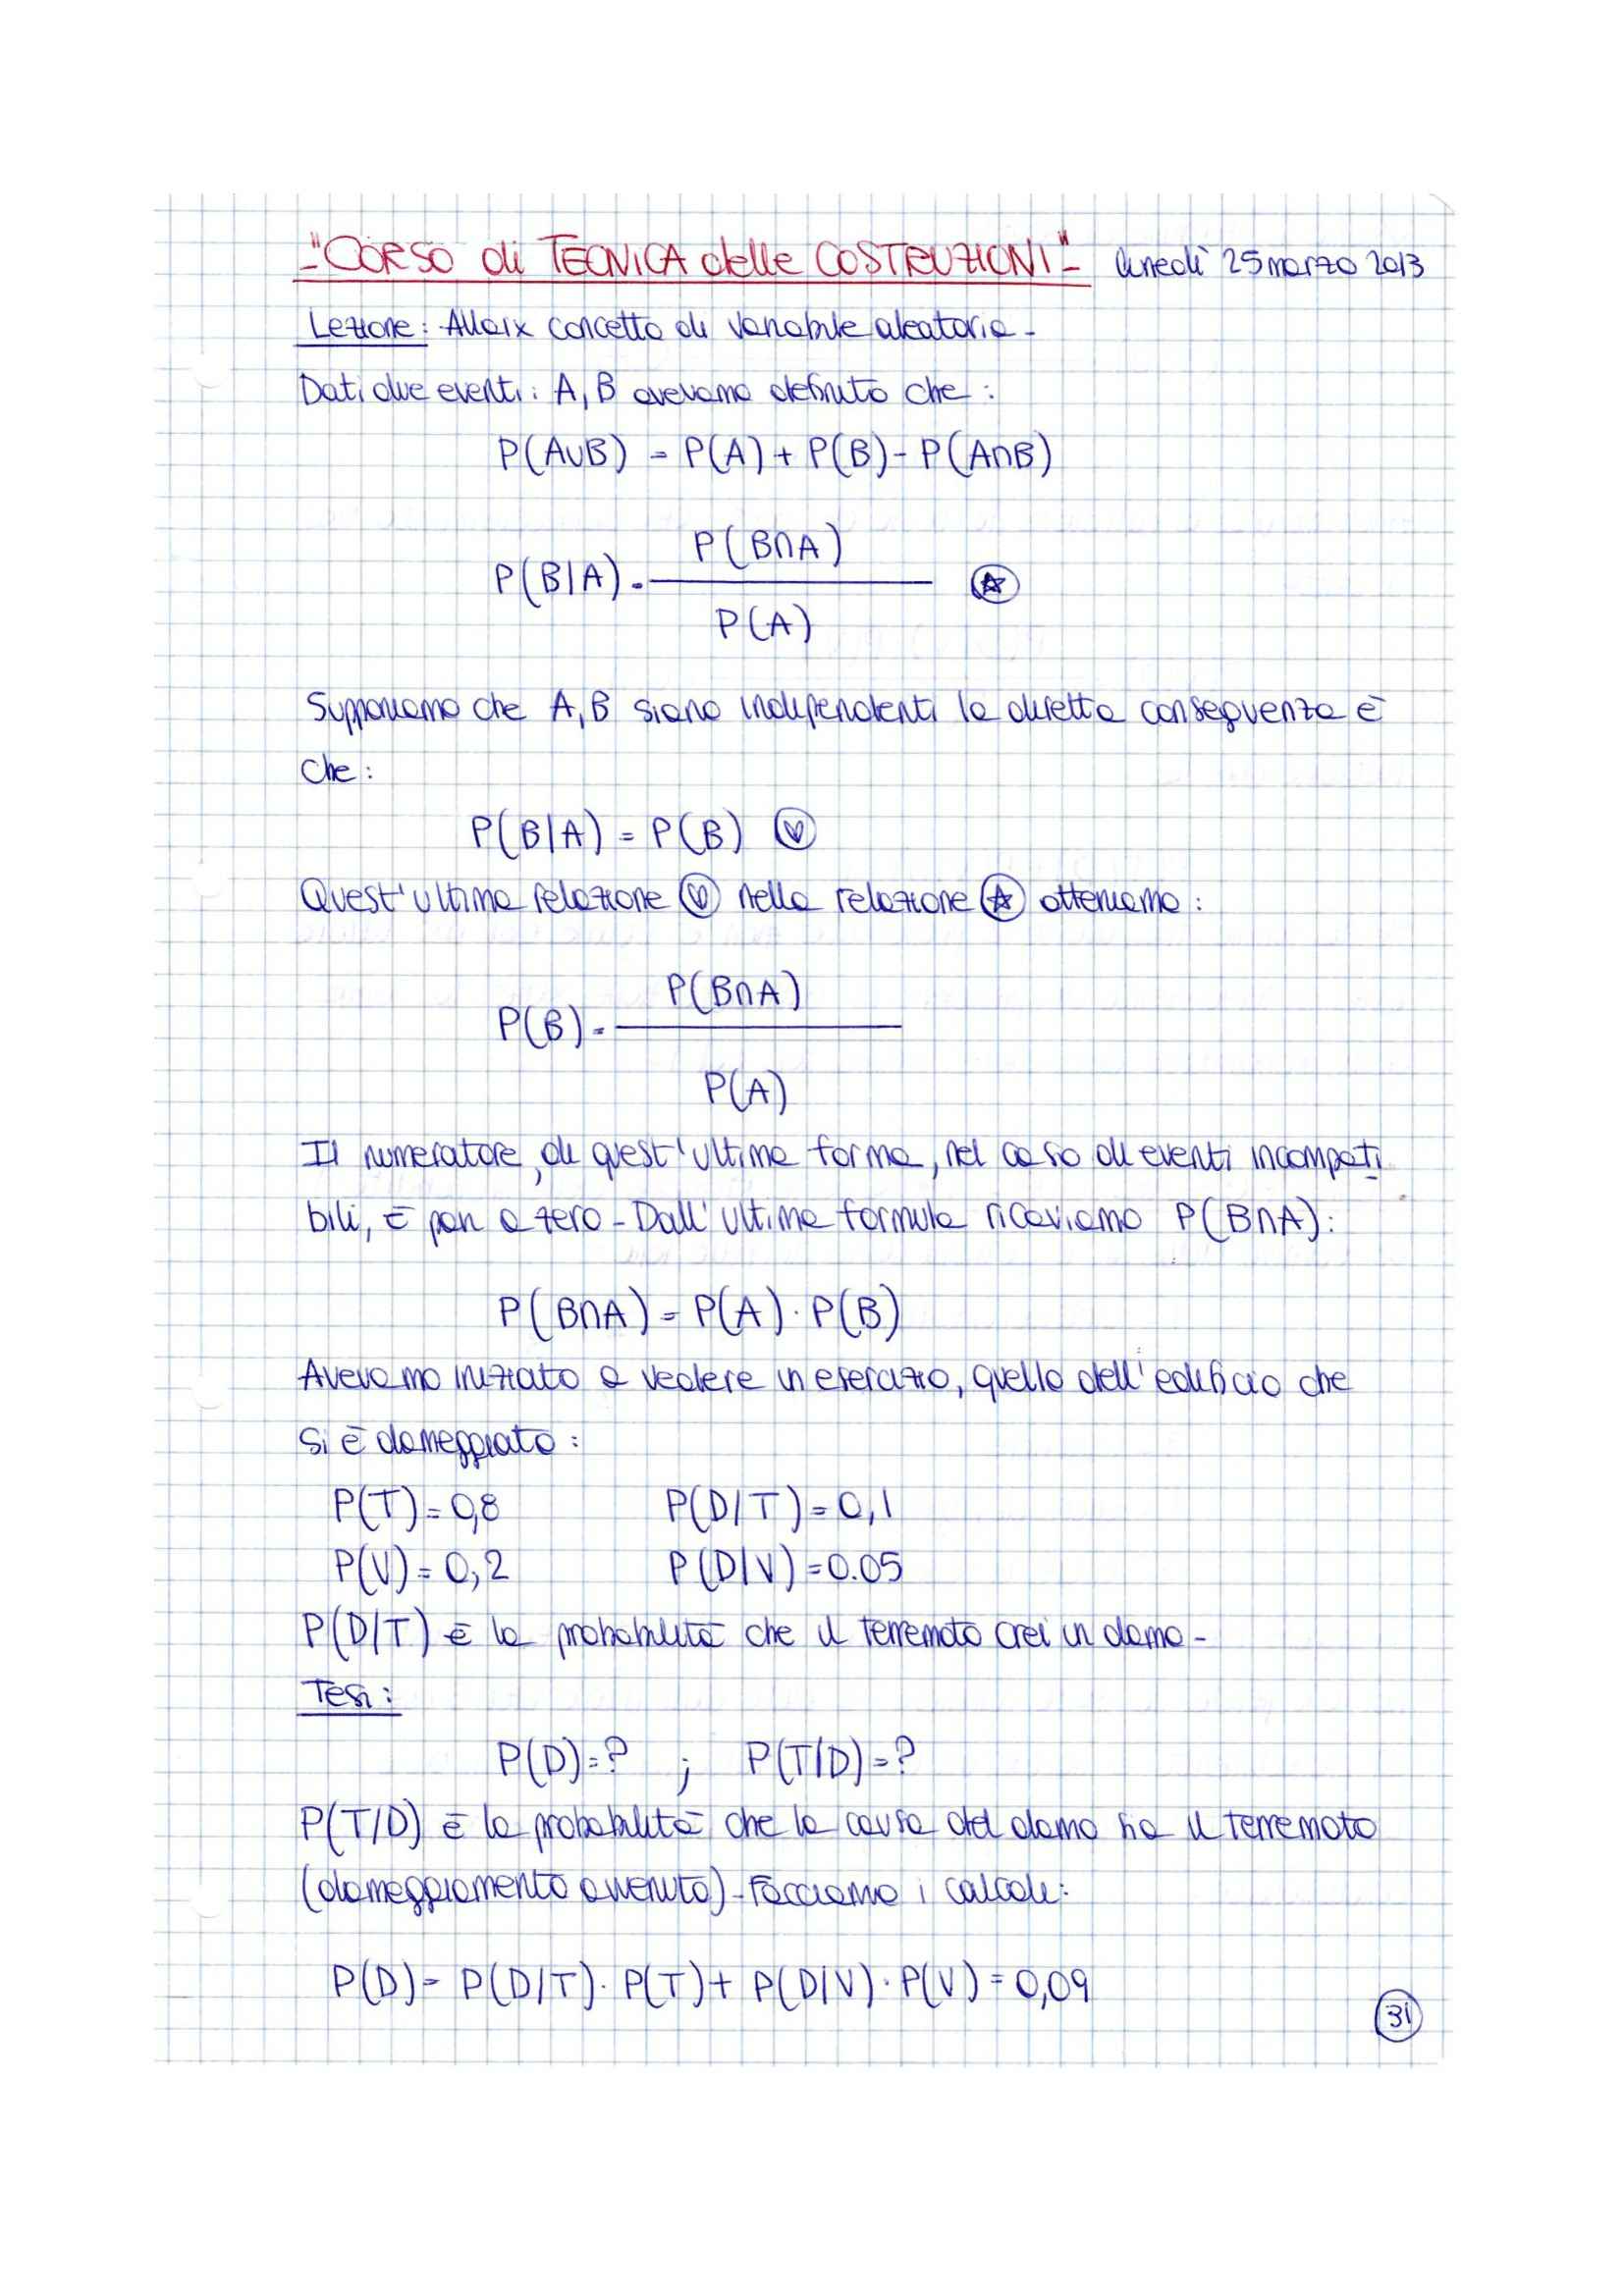 -"CORSO di TECNICA delle COSTRUZIONI"- lunedì 25 marzo 2013
Lezione: Allaix concetto di variabile aleatoria-
Dati due eventi: A, B avevamo definito che:
P(A∪B) = P(A) + P(B) - P(A∩B)
P(B|A) = P(B∩A) / P(A) ☆
Supponiamo che A, B siano indipendenti la diretta conseguenza è
che:
P(B|A) = P(B) ♡
Quest'ultima relazione ♡ nella relazione ☆ otteniamo:
P(B) = P(B∩A) / P(A)
Il numeratore, di quest'ultima forma, nel caso di eventi incompati
bili, è pari a zero - Dall'ultima formula ricaviamo P(B∩A):
P(B∩A) = P(A) · P(B)
Avevamo iniziato a vedere un esercizio, quello dell'edificio che
si è danneggiato:
P(T) = 0,8 P(D/T) = 0,1
P(V) = 0,2 P(D/V) = 0.05
P(D/T) è la probabilità che il terremoto crei un danno-
Tesi:
P(D) = ? ; P(T/D) = ?
P(T/D) è la probabilità che la causa del danno sia il terremoto
(danneggiamento avvenuto) - Facciamo i calcoli:
P(D) = P(D/T) · P(T) + P(D/V) · P(V) = 0,09
31